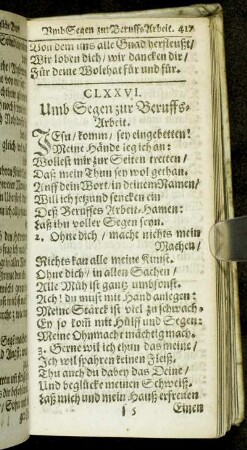 Umb Segen zur Beruffs Arbeit. 417
Von dem uns alle Gnad herfleußt/
Wir loben dich/ wir dancken dir/
Für deine Wolthat für und für.
CLXXVI.
Umb Segen zur Beruffs-
Arbeit.
JEsu/ komm/ sey eingebetten!
Meine Hände leg ich an:
Wollest mir zur Seiten tretten/
Daß mein Thun sey wol gethan.
Auff dein Wort/ in deinem Namen/
Will ich jetzund sencken ein
Deß Beruffes Arbeit-Hamen:
Laß ihn voller Segen seyn.
2. Ohne dich/ macht nichts mein
Machen/
Nichts kan alle meine Kunst.
Ohne dich/ in allen Sachen/
Alle Müh ist gantz umbsunst.
Ach! du must mit Hand anlegen:
Meine Stärck ist viel zu schwach-
Ey so kom̃ mit Hülff und Segen:
Meine Ohnmacht mächtig mach.
3. Gerne wil ich thun das meine/
Jch wil spahren keinen Fleiß.
Thu auch du dabey das Deine/
Und beglücke meinen Schweiß.
Laß mich und mein Hauß erfreuen
5 Einen